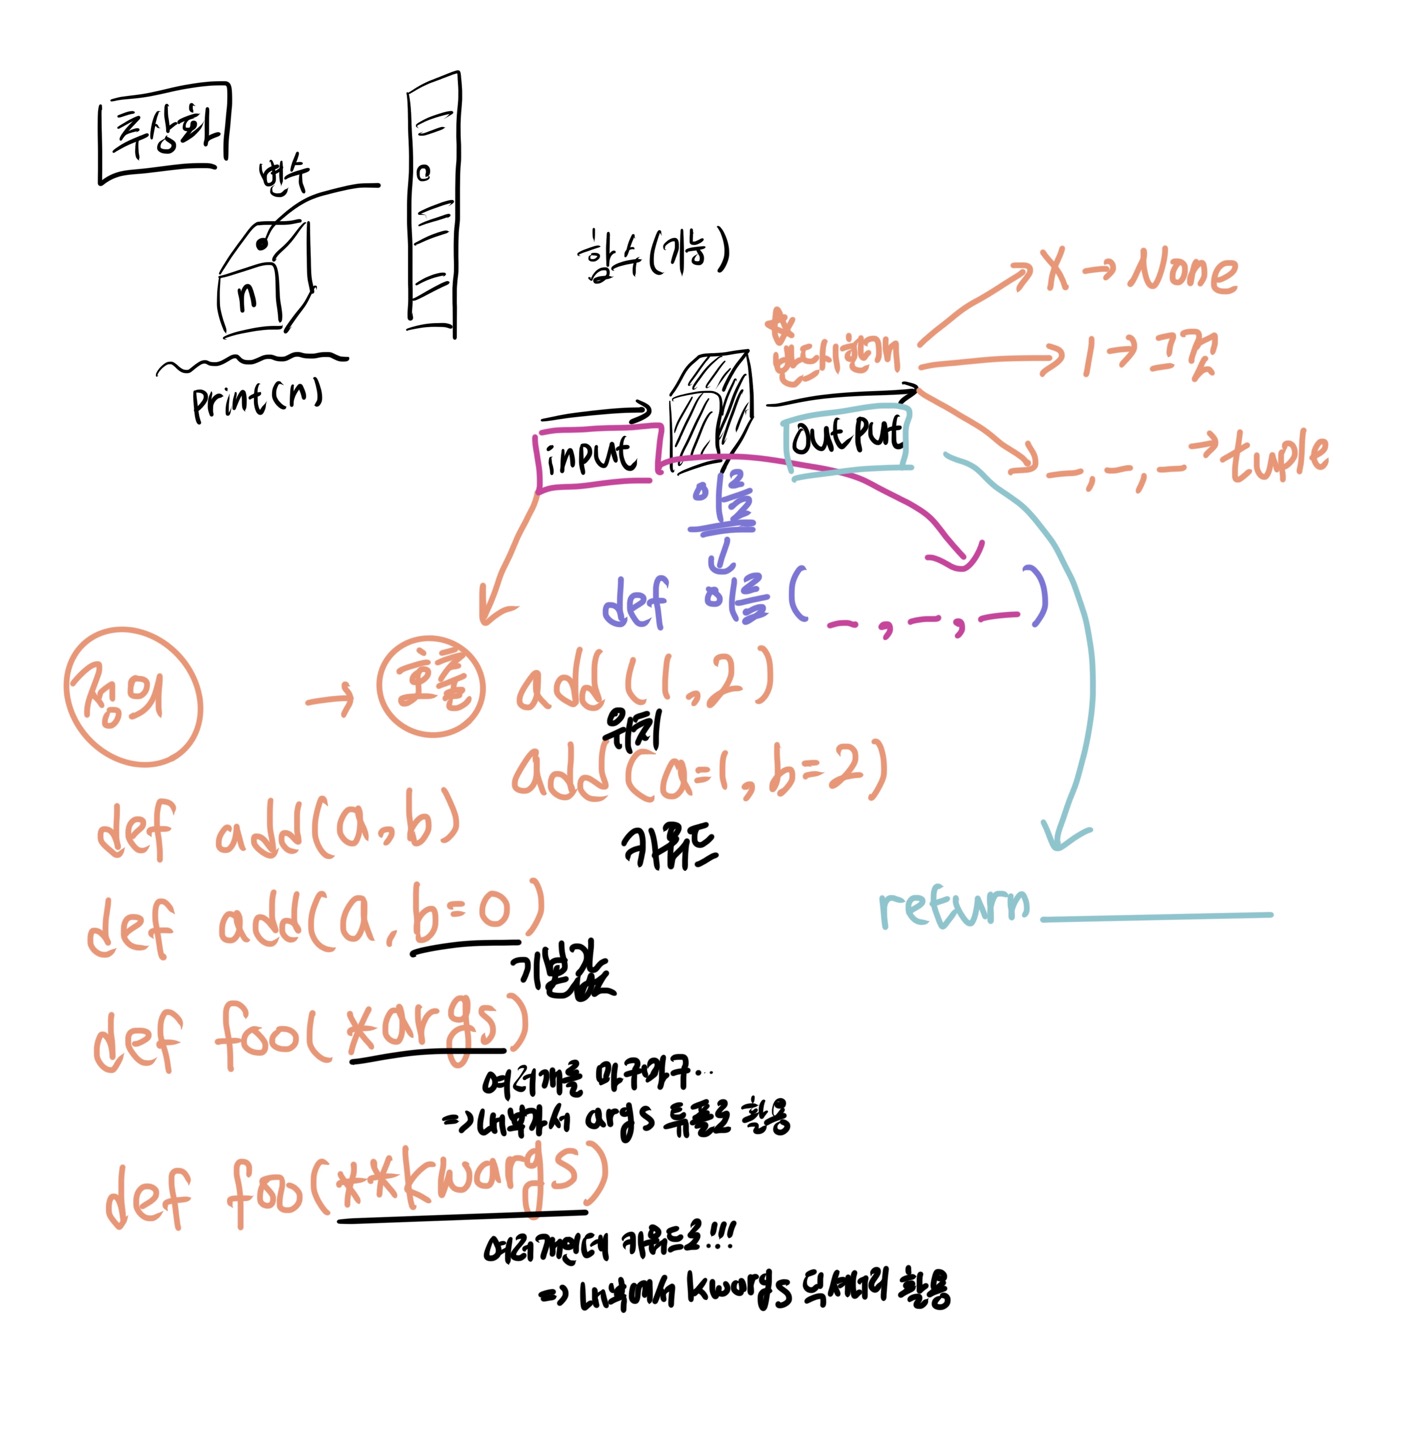 추상화
변수
n
print(n)
함수(기능)
input
이름
반드시한개
output
X → None
1 → 그것
_, _, _ → tuple
def 이름(_, _, _)
정의 → 호출
add(1,2)
위치
add(a=1, b=2)
키워드
def add(a,b)
def add(a, b=0)
기본값
def foo(*args)
여러개를 마구마구..
=> 내부가서 args 튜플로 활용
def foo(**kwargs)
여러개인데 키워드로!!!
=> 내부에서 kwargs 딕셔너리 활용
return